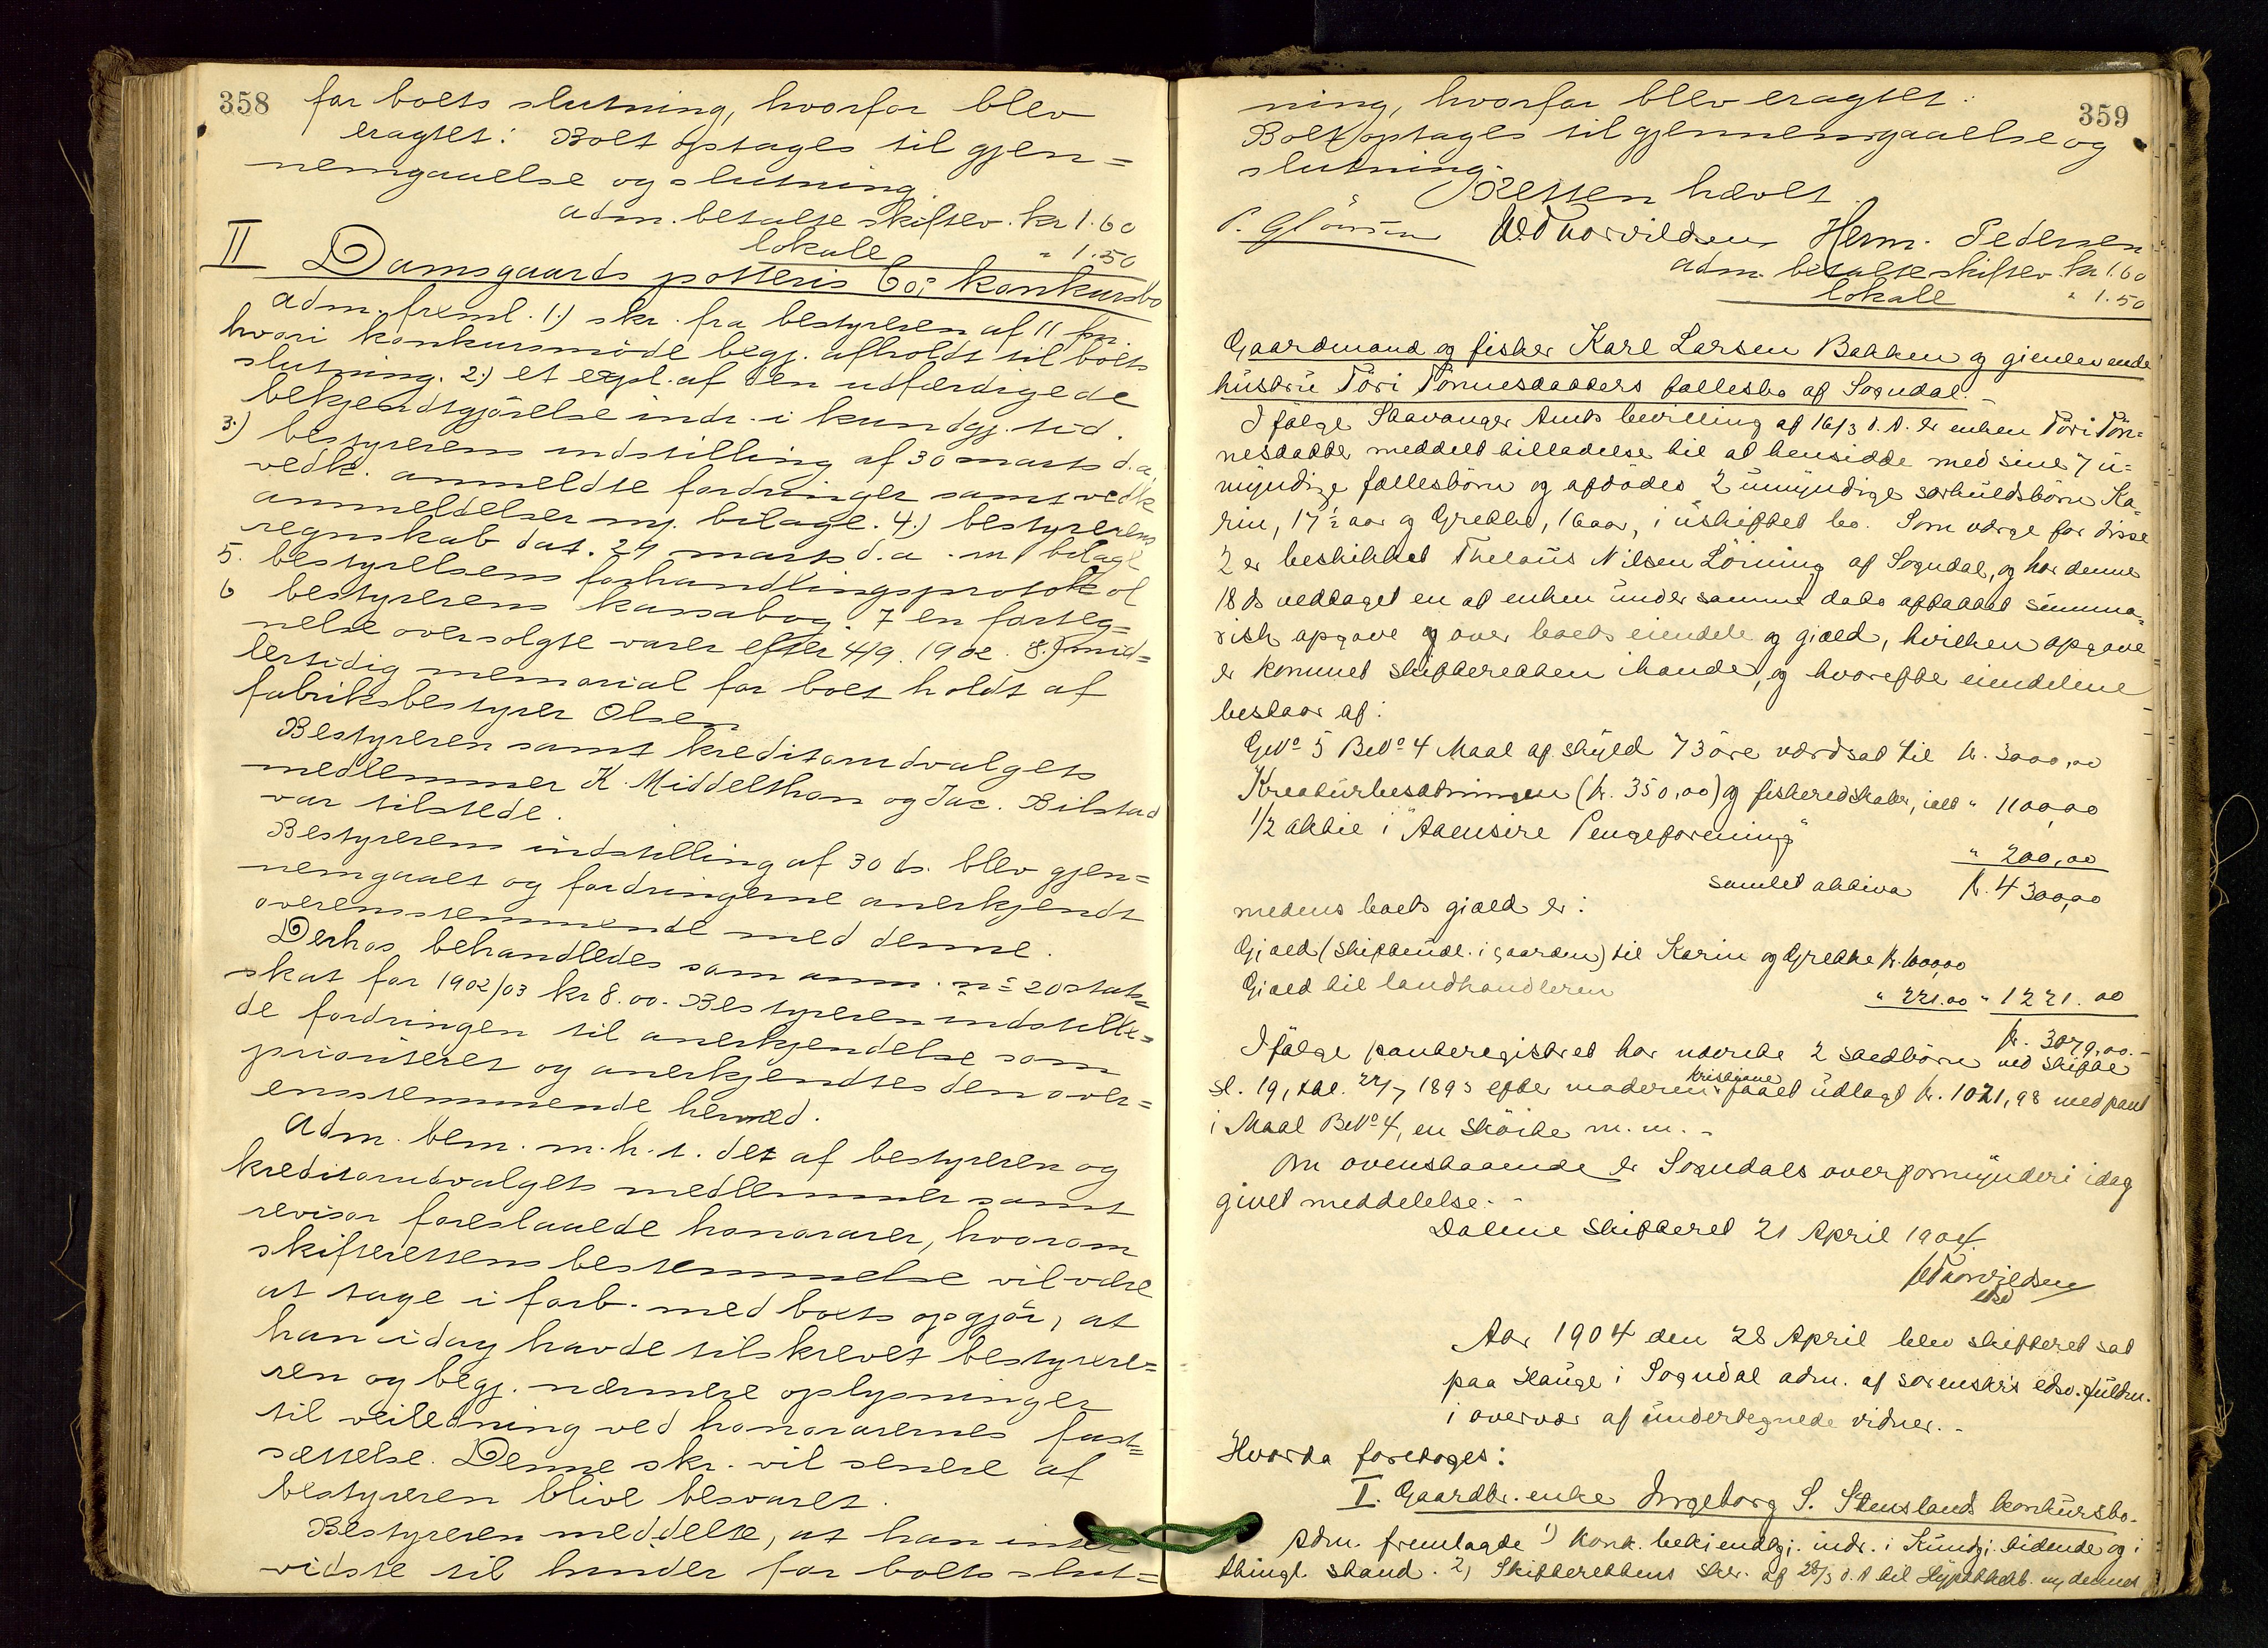 358
for boets slutning, hvorfor blev
eragtet: Boet optages til gjen=
nemgaaelse og slutning.
adm. betalte skiftev. kr 1.60
lokale " 1.50
II Damsgaards potteris Co's konkursbo
adm. freml. 1.) skr. fra bestyreren af 11 ds.
hvori konkursmöde begj. afholdt til boets
slutning. 2.) et expl. af den udfærdigede
bekjendtgjörelse indr. i kundgj. tid.
3.) bestyrerens indstilling af 30 marts d.a.
vedk. anmeldte fordringer samt vedk
anmeldelser m. bilage. 4.) bestyrerens
regnskab dat. 29 marts d.a. m bilage
5. bestyrelsens forhandlingsprotokol
6 bestyrerens kassabog. 7 en forteg=
nelse over solgte varer efter 4/9. 1902. 8.) mid=
lertidig memorial for boet holdt af
fabriksbestyrer Olsen
Bestyreren samt kreditorudvalgets
medlemmer K. Middelthon og Jac. Bilstad
var tilstede.
Bestyrerens indstilling af 30 ds. blev gjen=
nemgaaet og fordringerne anerkjendt
overensstemmende med denne.
Derhos behandledes som anm. nº 20 stats=
skat for 1902/03 kr 8.00. Bestyreren indstille=
de fordringen til anerkjendelse som
prioriteret og anerkjendtes den over=
ensstemmende hermed.
Adm. bem. m.h.t. det af bestyreren og
kreditorudvalgets medlemmer samt
revisor foreslaaede honorarer, hvorom
skifterettens bestemmelse vil være
at tage i forb. med boets opgjör, at
han idag havde tilskrevet bestyrere=
ren og begj. nærmere oplysninger
til veiledning ved honorarernes fast=
sættelse. Denne skr. vil senere af
bestyreren blive besvaret.
Bestyreren meddelte, at han intet
vidste til hinder for boets slut=
359
ning, hvorfor blev eragtet:
Boet optages til gjennemgaaelse og
slutning.
Retten hævet.
W. Thorvildsen Herm. Pedersen
adm. betalte skiftev. kr 1.60
lokale " 1.50
Gaardmand og fisker Karl Larsen Bakken og gjenlevende
hustru Töri Tönnesdatters fællesbo af Sogndal.-
Ifölge Stavanger Amts bevilling af 16/3 d.A. er enken Töri Tön=
nesdatter meddelt tilladelse til at hensidde med sine 7 u=
myndige fællesbörn og afdödes 2 umyndige særkuldsbörn Ka=
rin, 17½ aar og Grethe, 16 aar, i uskiftet bo. Som værge for disse
2 er beskikket Thelaus Nilsen Löining af Sogndal, og har denne
18 ds vedtaget en af enken under samme dato affattet summa=
risk opgave og over boets eiendele og gjæld, hvilken opgave
er kommet skifteretten ihænde, og hvorefter eiendelene
bestaar af:
GNo 5 BNo 4 Maal af skyld 73 öre værdsat til kr. 3000,00
Kreaturbesætningen (kr. 350,00) og fiskeredskaber, ialt " 1100,00
1/2 aktie i "Aaensire Pengeforening"
" 200,00
samlet aktiva kr. 4300,00
medens boets gjæld er:
Gjæld (skifteudl. i gaarden) til Karin og Grethe kr. 1000,00
Gjæld til landhandleren " 221.00 " 1221.00
kr. 3079,00.-
Ifölge panteregistret har nævnte 2 stedbörn ved skifte
sl. 19, tal. 22/7 1893 efter moderen Kristiane faaet udlagt kr. 1021,98 med pant
i Maal BNo 4, en sköite m.m. -
Om ovenstaaende er Sogndals overformynderi idag
givet meddelelse.-
Dalene Skifteret 21 April 1904.
W Thorvildsen
edsv
Aar 1904 den 28 April blev skifteret sat
paa Hauge i Sogndal adm. af sorenskr's edsv. fuldm.
i overvær af undertegnede vidner.-
Hvorda foretoges:
I. Gaardbr. enke Ingeborg S. Stenslands konkursbo.
Adm. fremlagde 1) Konk. bekjendtgj. indr. i Kundgj. tidende og i
thingl. stand. 2) Skifterettens skr. af 28/3 d.A til